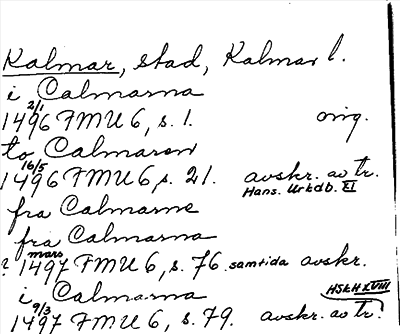 Kalmar, stad, Kalmar l.
i Calmarna
2/1
1496 FMU 6, s. 1. orig.
to Calmaren
16/5
1496 FMU 6, s. 21. avskr. av tr.
Hans. Urkdb. XI
fra Calmarne
fra Calmarna
mars
? 1497 FMU 6, s. 76. samtida avskr.
i Calmarna HSkH XVIII
9/3
1497 FMU 6, s. 79. avskr. av tr.